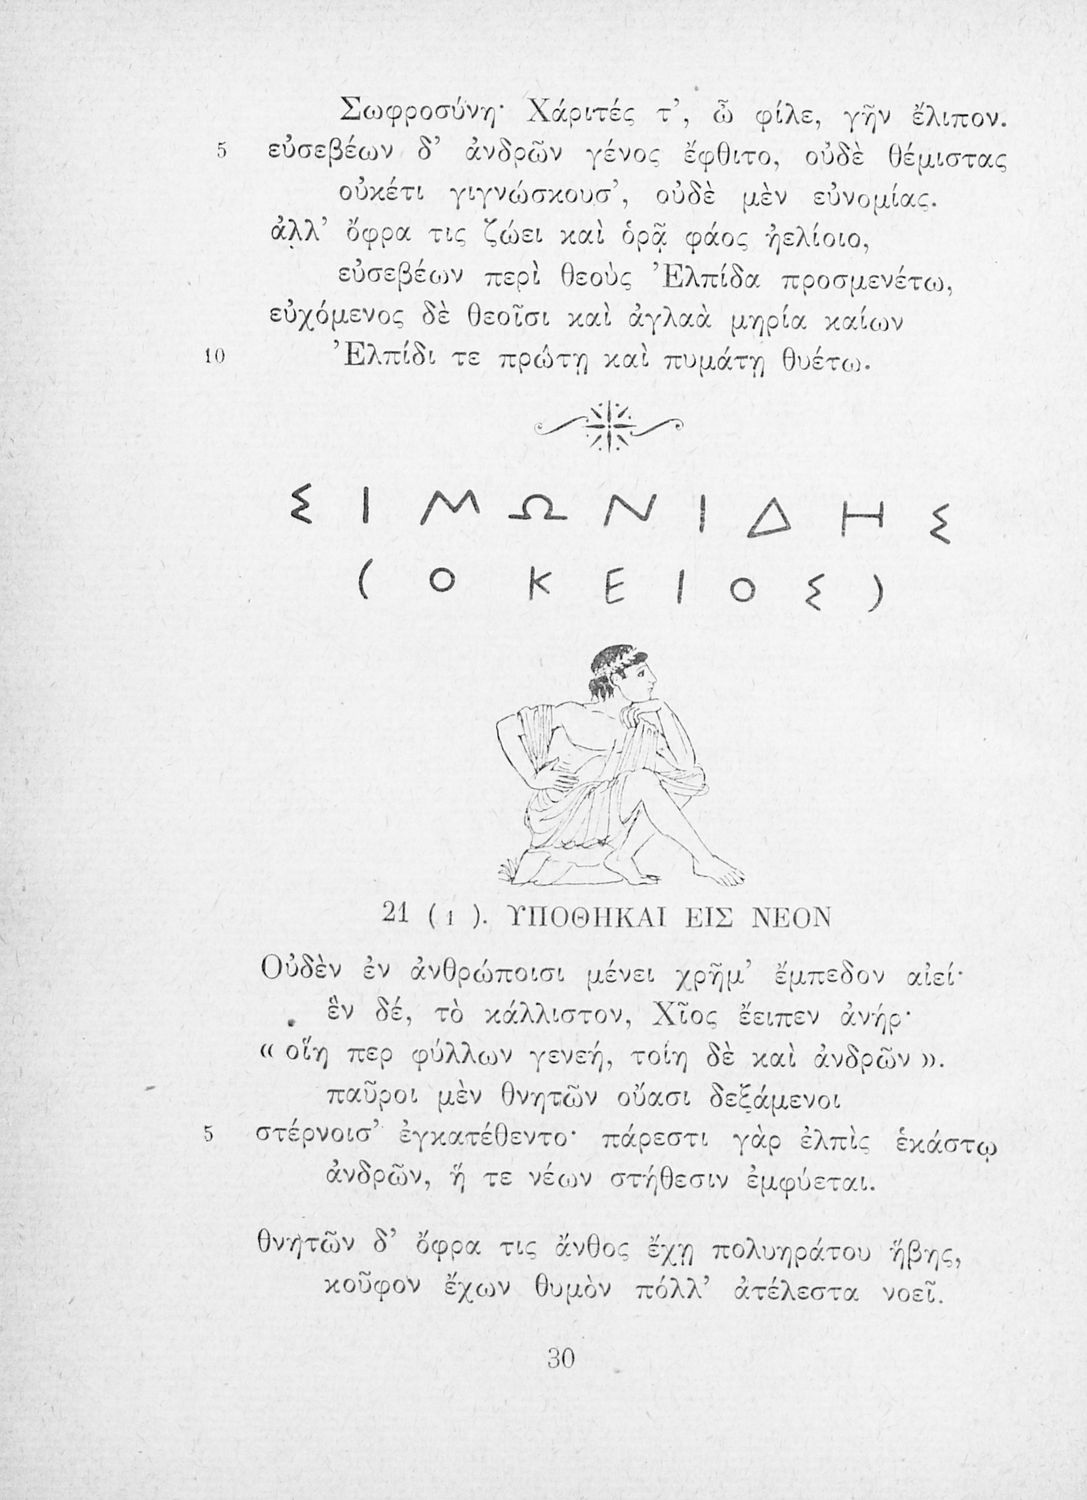 Σωφροσύνη· Χάριτές τ’, ὦ φίλε, γῆν ἔλιπον.
5 εὐσεβέων δ’ ἀνδρῶν γένος ἔφθιτο, οὐδὲ θέμιστας
οὐκέτι γιγνώσκουσ’, οὐδὲ μὲν εὐνομίας.
ἀλλ’ ὄφρα τις ζώει καὶ ὁρᾷ φάος ἠελίοιο,
εὐσεβέων περὶ θεοὺς Ἐλπίδα προσμενέτω,
εὐχόμενος δὲ θεοῖσι καὶ ἀγλαὰ μηρία καίων
10 Ἐλπίδι τε πρώτῃ καὶ πυμάτῃ θυέτω.
ΣΙΜΩΝΙΔΗΣ
(Ο ΚΕΙΟΣ)
21 (1). ΥΠΟΘΗΚΑΙ ΕΙΣ ΝΕΟΝ
Οὐδὲν ἐν ἀνθρώποισι μένει χρῆμ’ ἔμπεδον αἰεί·
ἓν δέ, τὸ κάλλιστον, Χῖος ἔειπεν ἀνήρ·
« οἵη περ φύλλων γενεή, τοίη δὲ καὶ ἀνδρῶν ».
παῦροι μὲν θνητῶν οὔασι δεξάμενοι
5 στέρνοισ’ ἐγκατέθεντο· πάρεστι γὰρ ἐλπὶς ἑκάστῳ
ἀνδρῶν, ἥ τε νέων στήθεσιν ἐμφύεται.
θνητῶν δ’ ὄφρα τις ἄνθος ἔχῃ πολυηράτου ἥβης,
κοῦφον ἔχων θυμὸν πόλλ’ ἀτέλεστα νοεῖ.
30